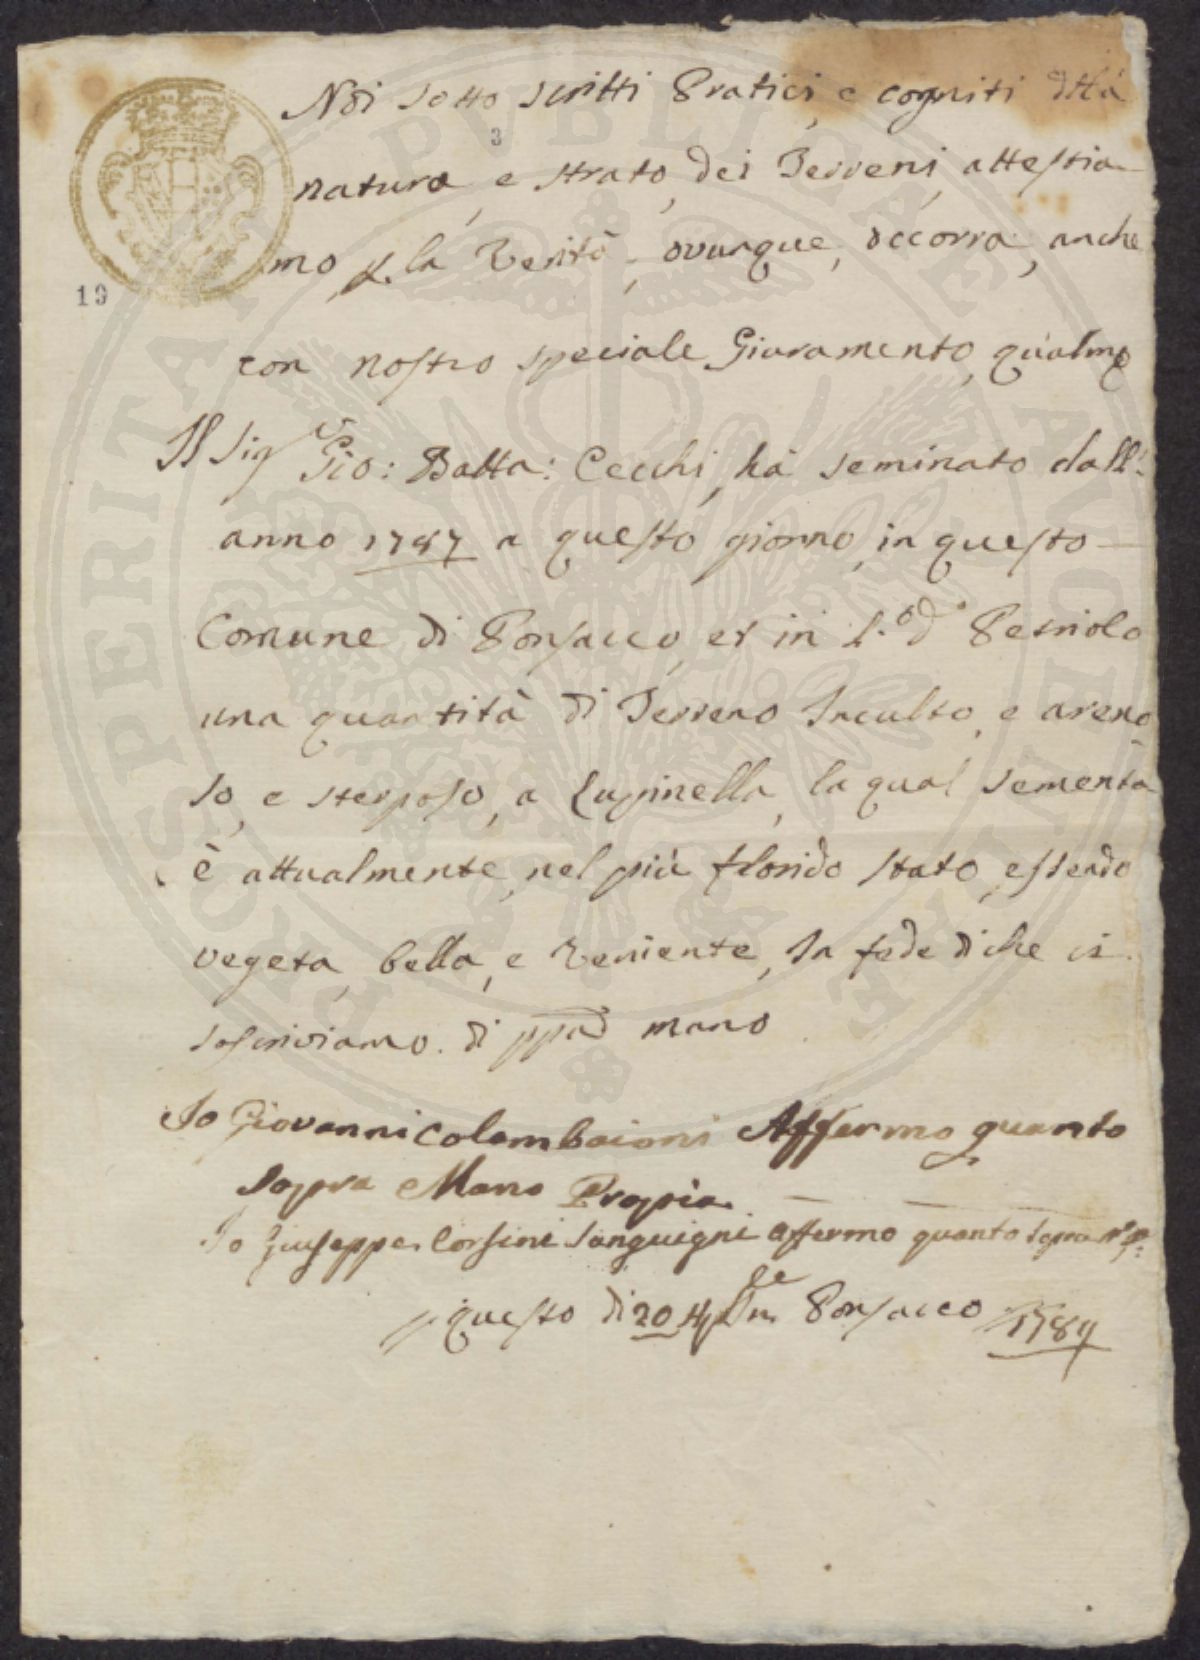 Noi sotto scritti Pratici, e cogniti della
3
natura, e strato, dei Terreni, attestia-
mo p. la Verità, ovunque, occorra, anche
19
con nostro speciale Giuramento, qualm.e
Il Sig.r Gio: Batta: Cecchi, ha seminato dall'
anno 1787 a questo giorno, in questo
Comune di Ponsacco, et in l.o d.o Petriolo
una quantità di Terreno Inculto, e areno
so, e sterposo, a Lupinella, la qual sementa
è attualmente, nel più florido stato, essendo
vegeta, bella, e Veniente, In fede di che ci
soscriviamo di ppa mano
Io Giovanni Colombaioni Affermo quanto
sopra Mano Propia
Io Giuseppe Corsini Sanguigni affermo quanto sopra M. P.
questo dì 20 Ponsacco 1789
PROSPERITATI PVBLICAE AVGENDAE